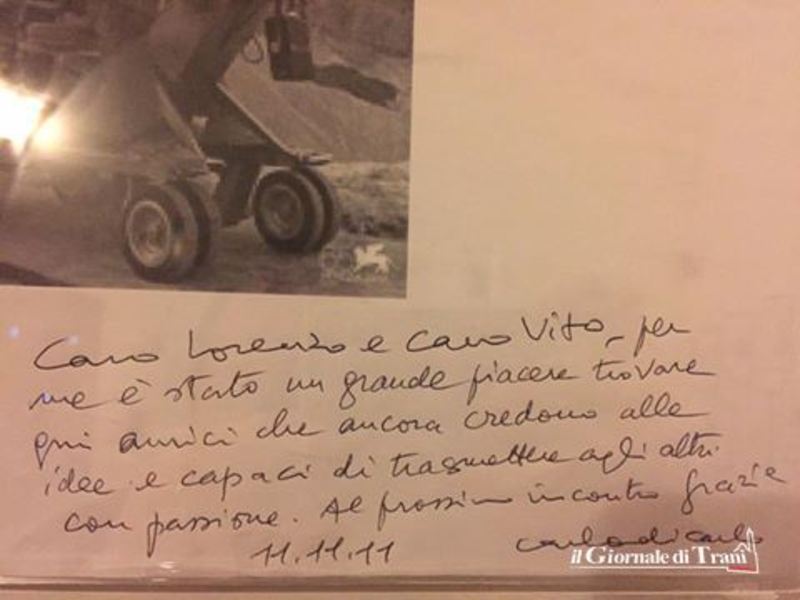 Caro Lorenzo e caro Vito, per
me è stato un grande piacere trovare
qui amici che ancora credono alle
idee e capaci di trasmettere agli altri
con passione. Al prossimo incontro grazie
carlo di carlo
11.11.11
il Giornale di Trani